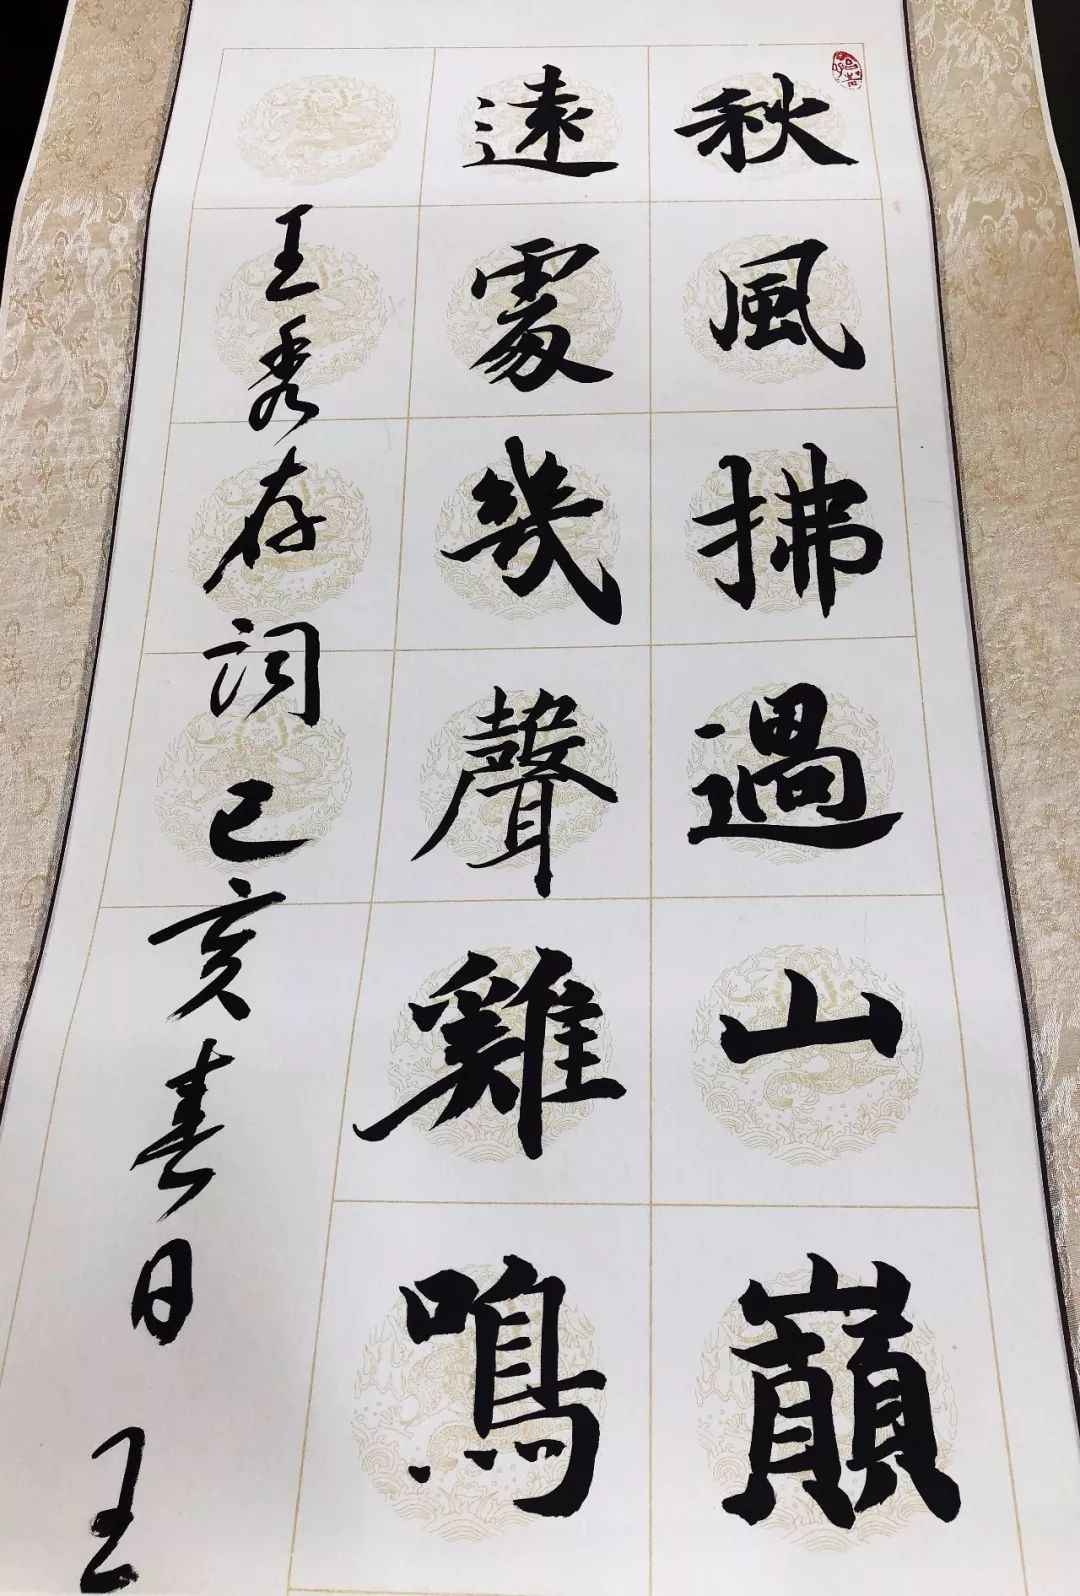 秋風拂過山巔
遠處幾聲雞鳴
王秀存词己亥春日王